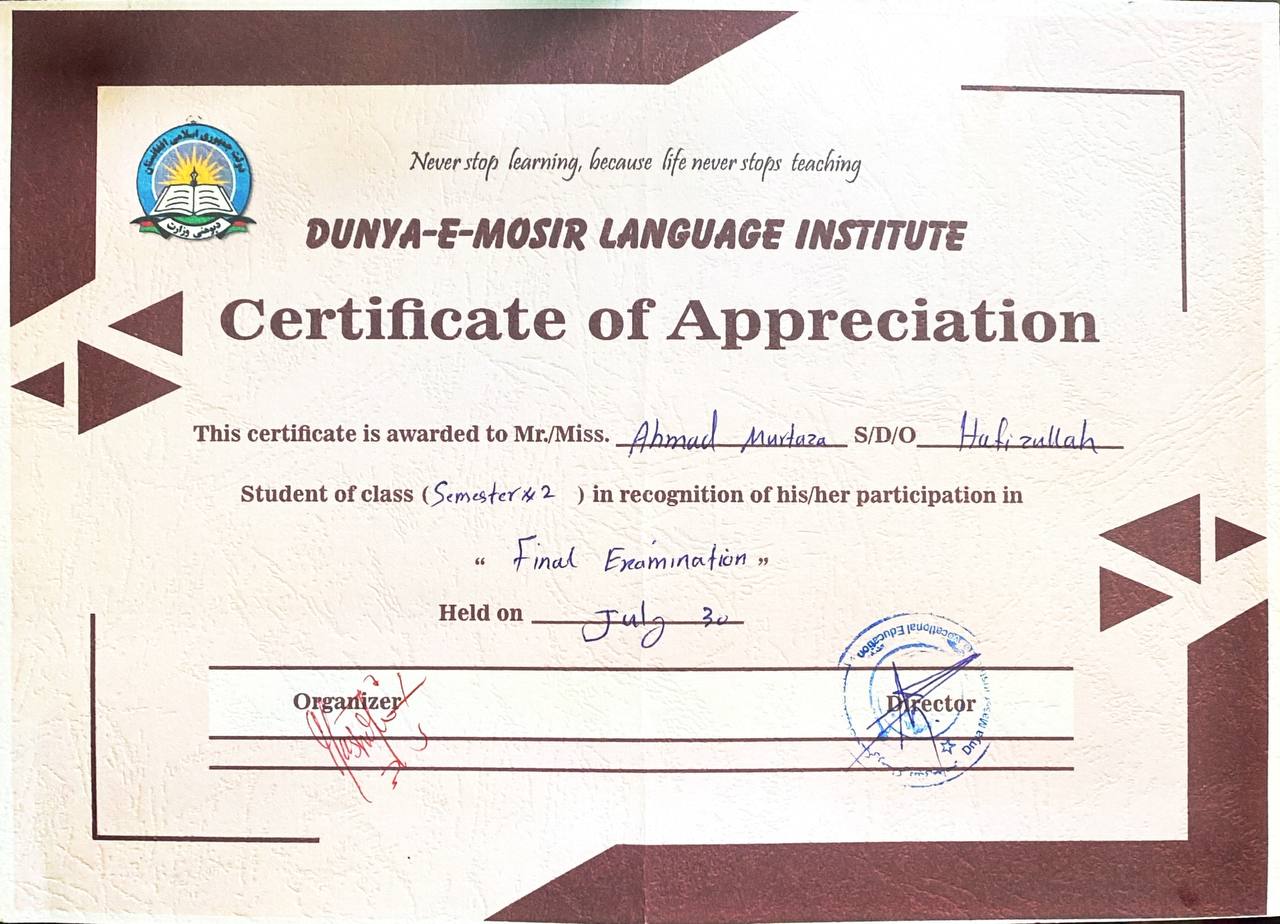 دولت جمهوری اسلامی افغانستان
د پوهنې وزارت
Never stop learning, because life never stops teaching
DUNYA-E-MOSIR LANGUAGE INSTITUTE
Certificate of Appreciation
This certificate is awarded to Mr./Miss. Ahmad Murtaza S/D/O Hafizullah
Student of class (Semester # 2 ) in recognition of his/her participation in
“ Final Examination ”
Held on July 30
Organizer Director
Vocational Education